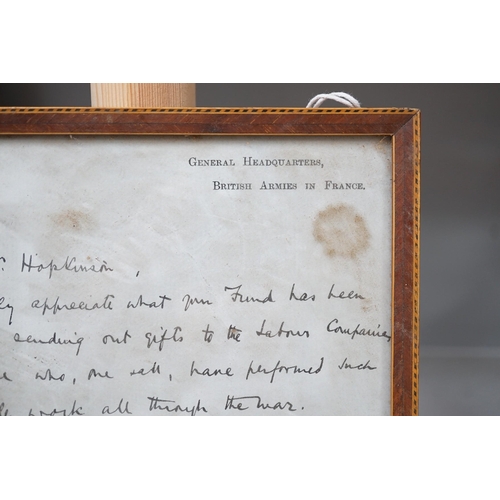 GENERAL HEADQUARTERS,
BRITISH ARMIES IN FRANCE.
Hopkinson,
appreciate what your Fund has been
sending out gifts to the Labour Companies
who, one & all, have performed such
work all through the war.